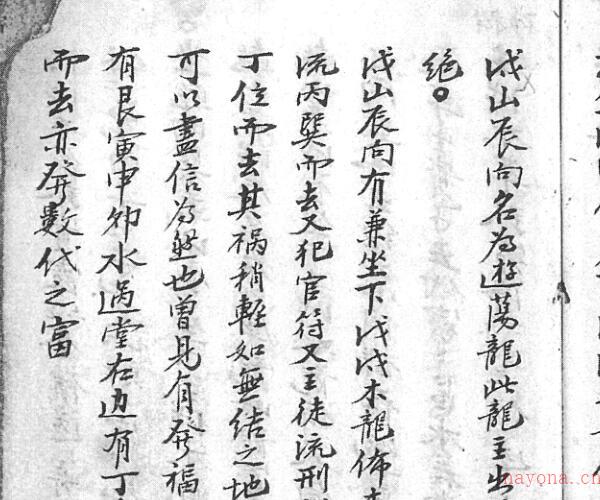 戌山辰向名為遊蕩龍此龍主出
絕。
戌山辰向有兼坐下戊戌木龍佈
流丙巽而去又犯官符又主徒流刑
丁位而去其祸稍輕如無結之地
可以盡信為盤也曾見有發福
有艮寅申卯水過堂右边有丁
而去亦發數代之富
nayona.cn